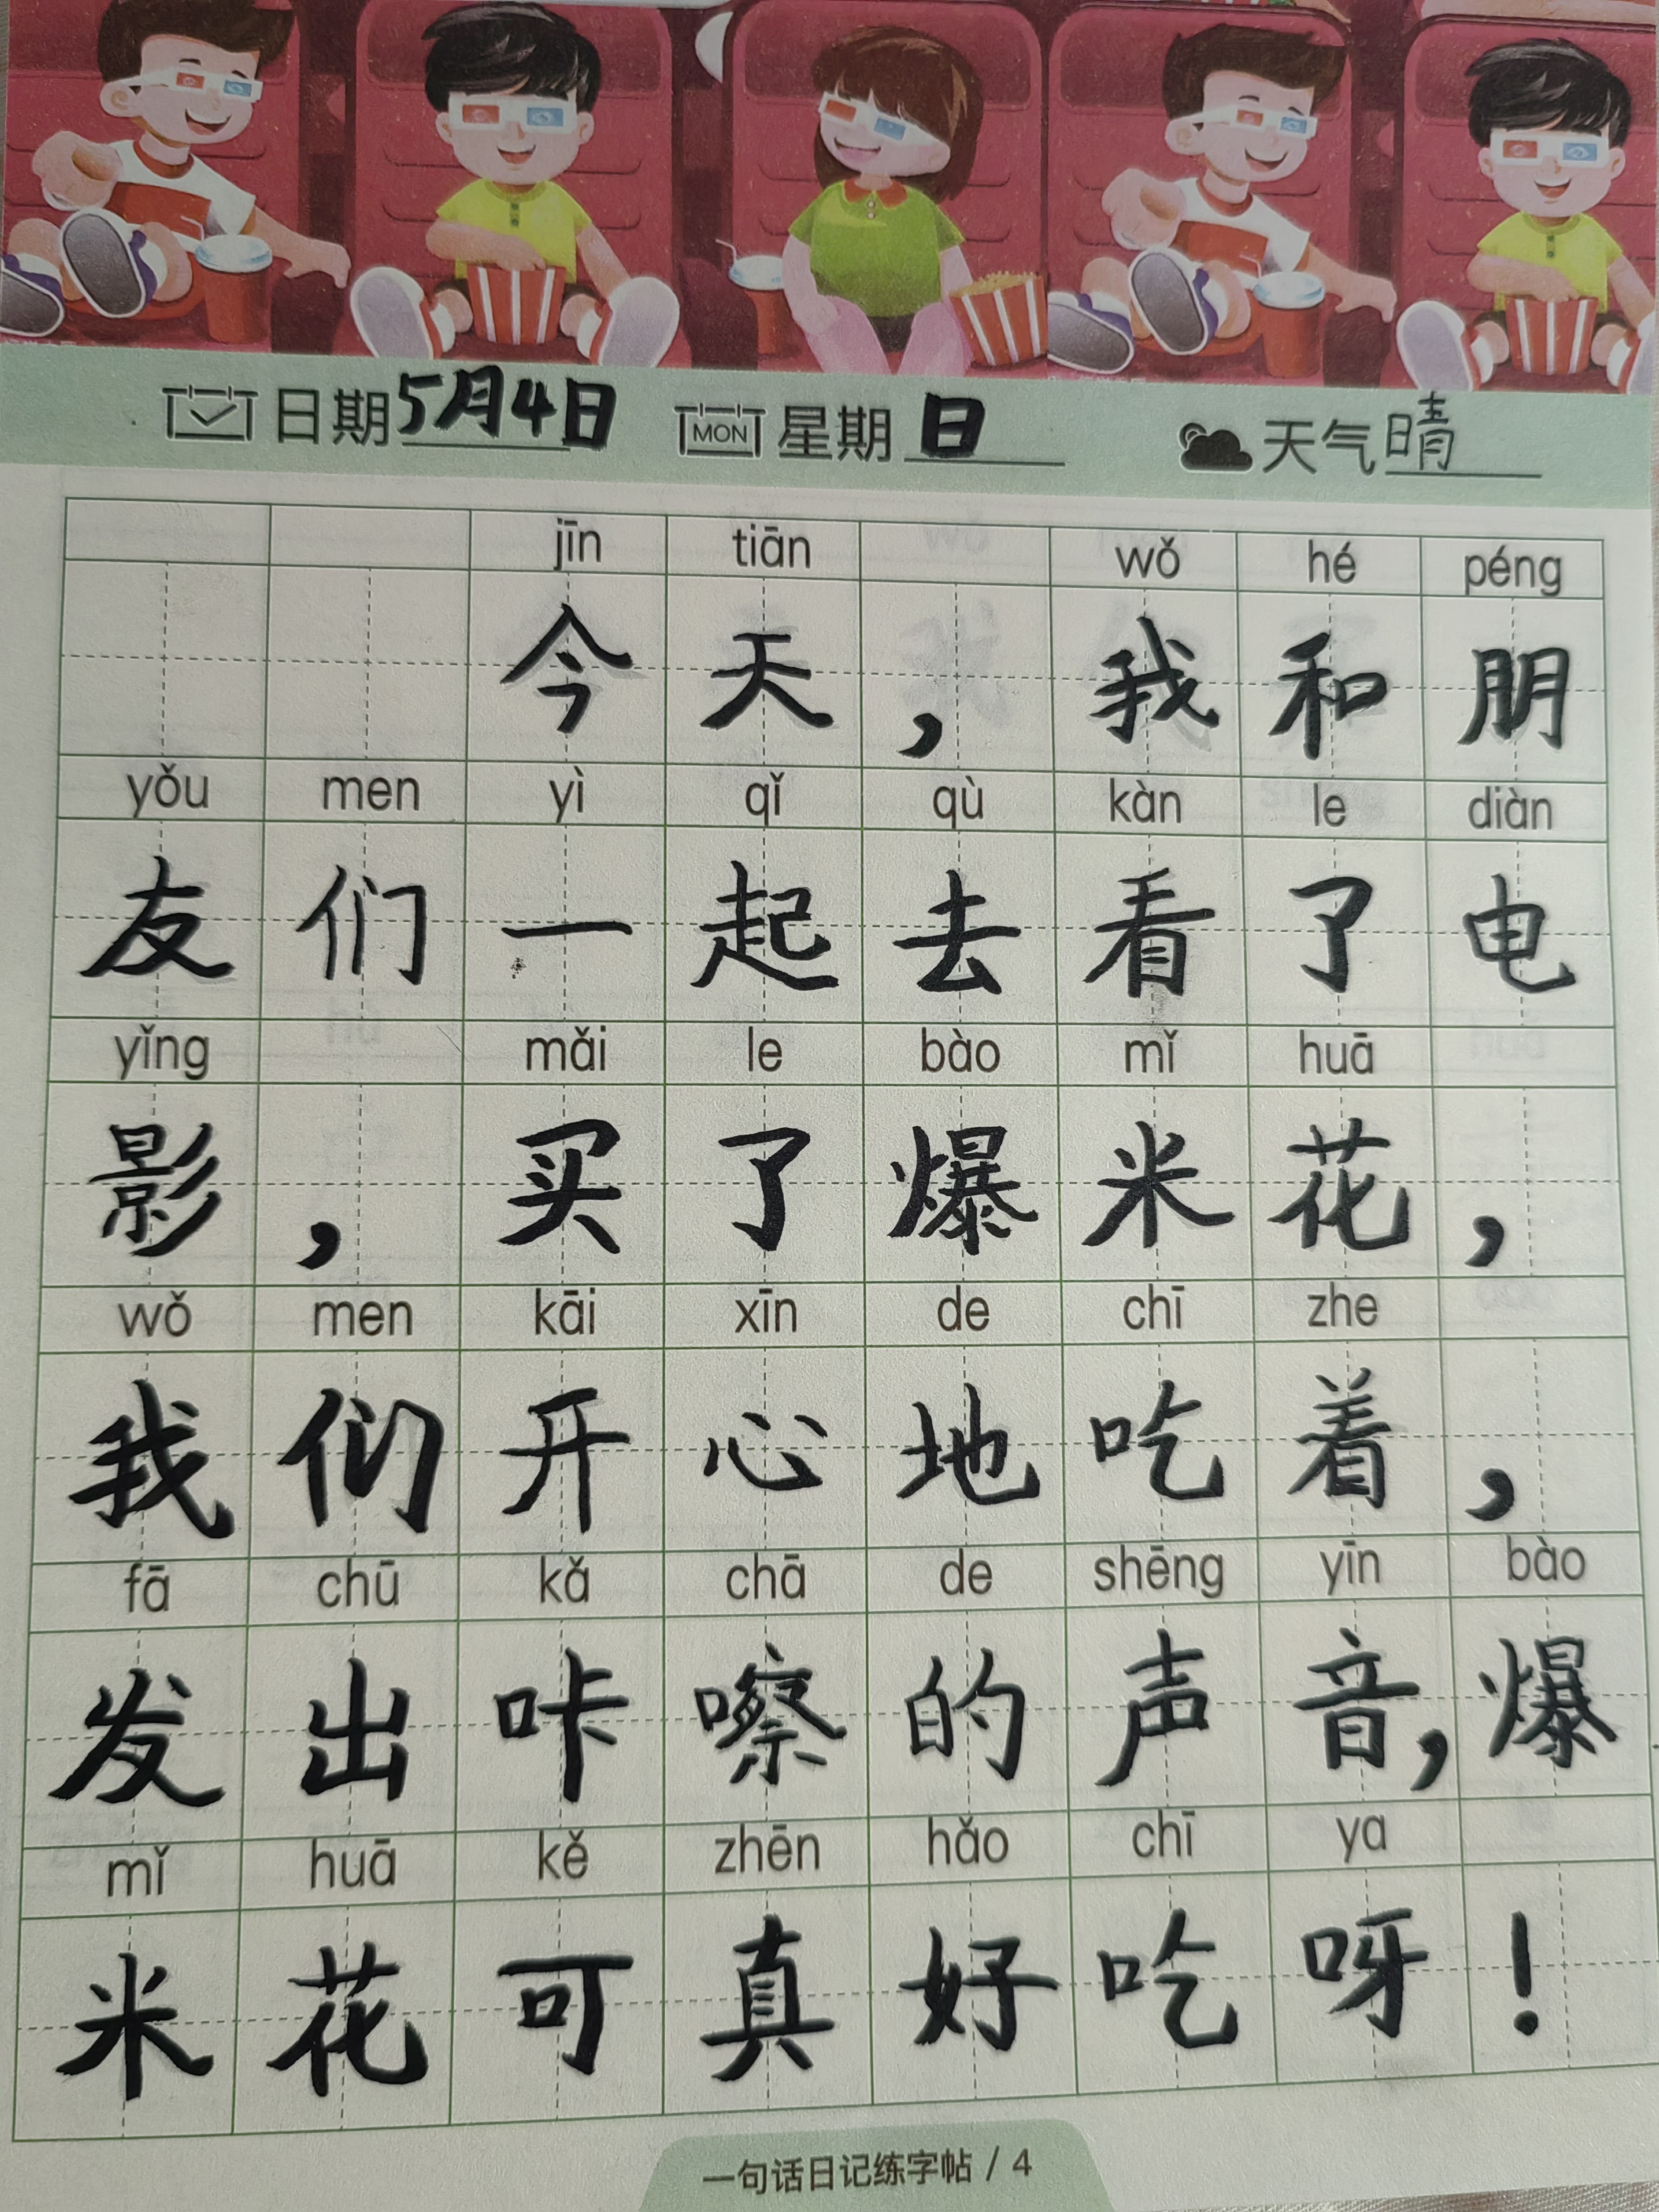 日期5月4日 MON 星期日 天气晴
jīn tiān wǒ hé péng
今天，我和朋
yǒu men yì qǐ qù kàn le diàn
友们一起去看了电
yǐng mǎi le bào mǐ huā
影，买了爆米花，
wǒ men kāi xīn de chī zhe
我们开心地吃着，
fā chū kǎ chā de shēng yīn bào
发出咔嚓的声音，爆
mǐ huā kě zhēn hǎo chī ya
米花可真好吃呀！
一句话日记练字帖 / 4